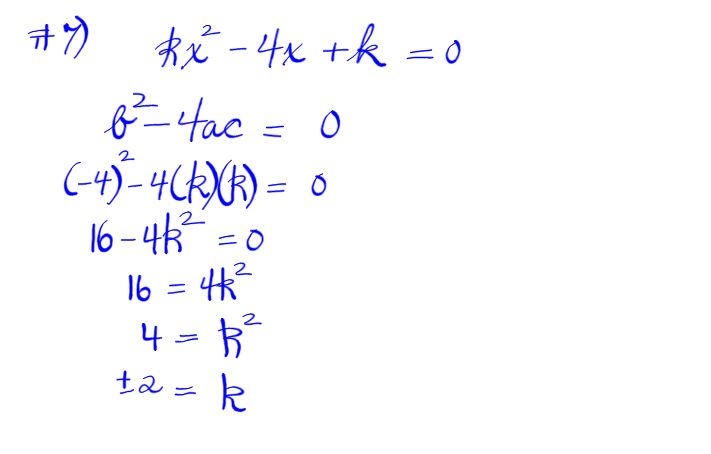 #7) kx² - 4x + k = 0
b² - 4ac = 0
(-4)² - 4(k)(k) = 0
16 - 4k² = 0
16 = 4k²
4 = k²
±2 = k